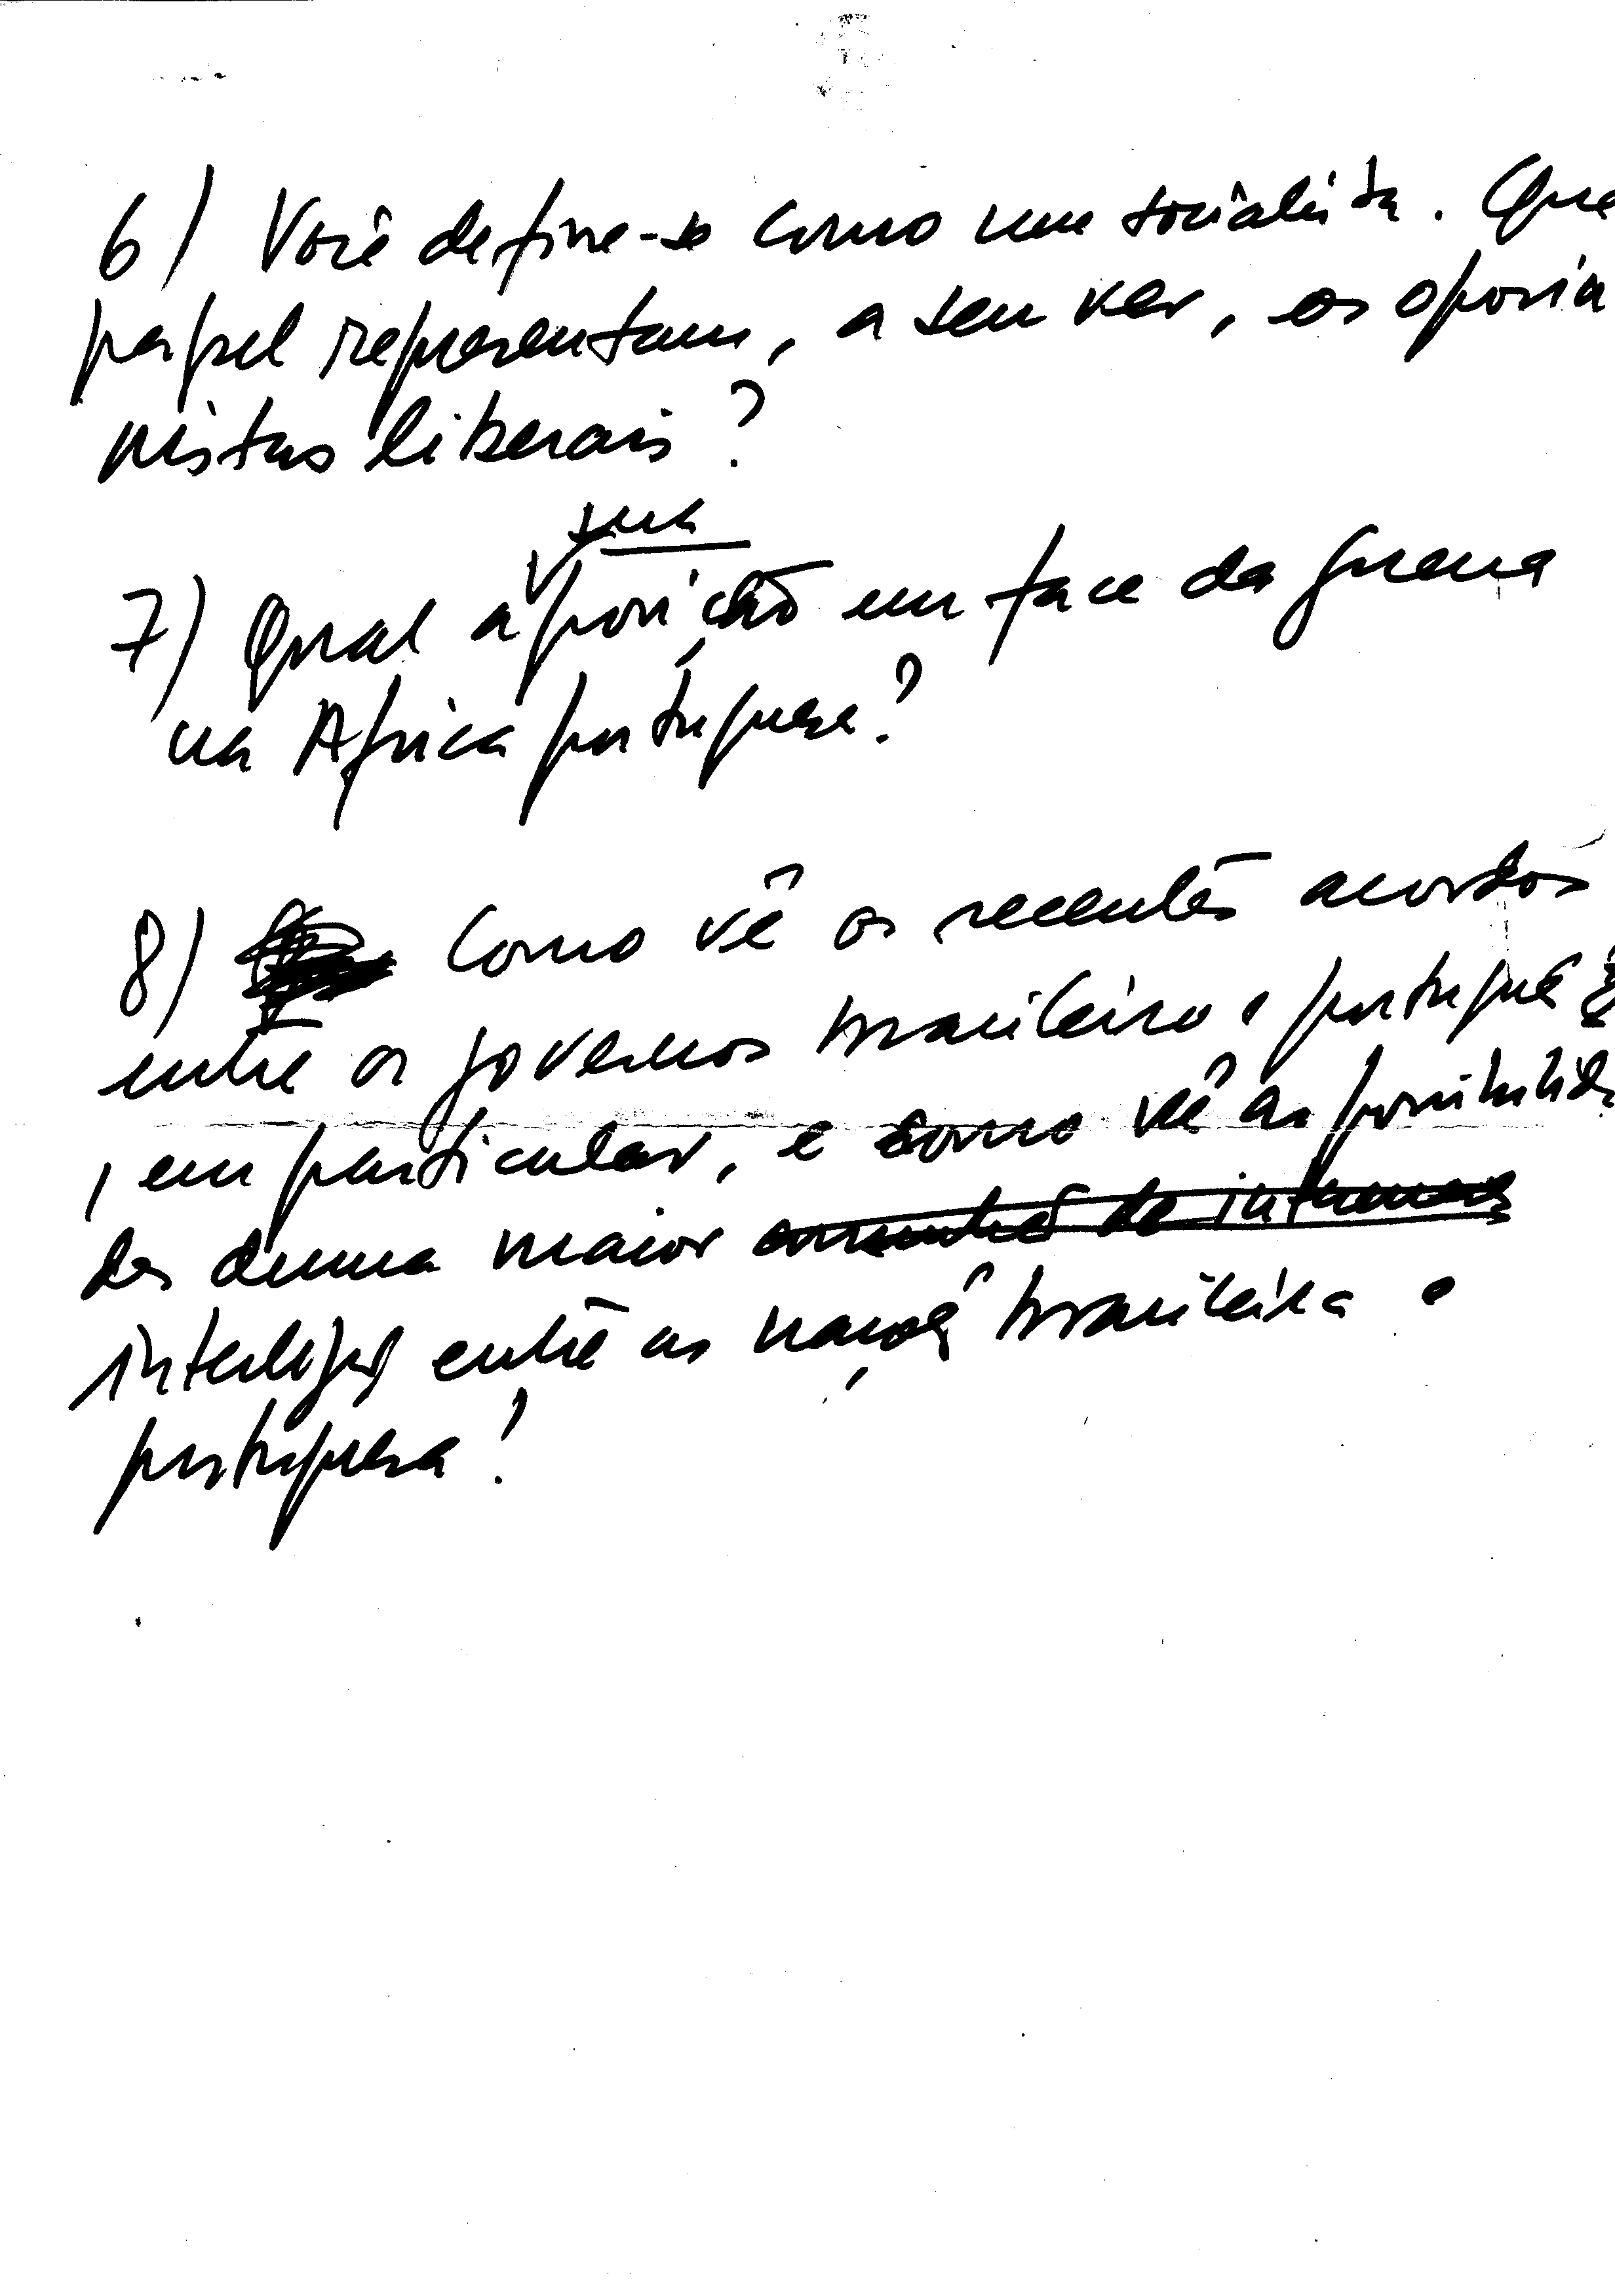 6) Você define-se como um socialista. Que
papel representam, a seu ver, os oposicio
nistas liberais?
sua
7) Qual a posição em face da guerra
na Africa portuguesa?
8) Como vê os recentes acordos
entre os governos brasileiro e português
, em particular, e como vê as possibilida
des duma maior
entre as nações brasileira e
portuguesa?